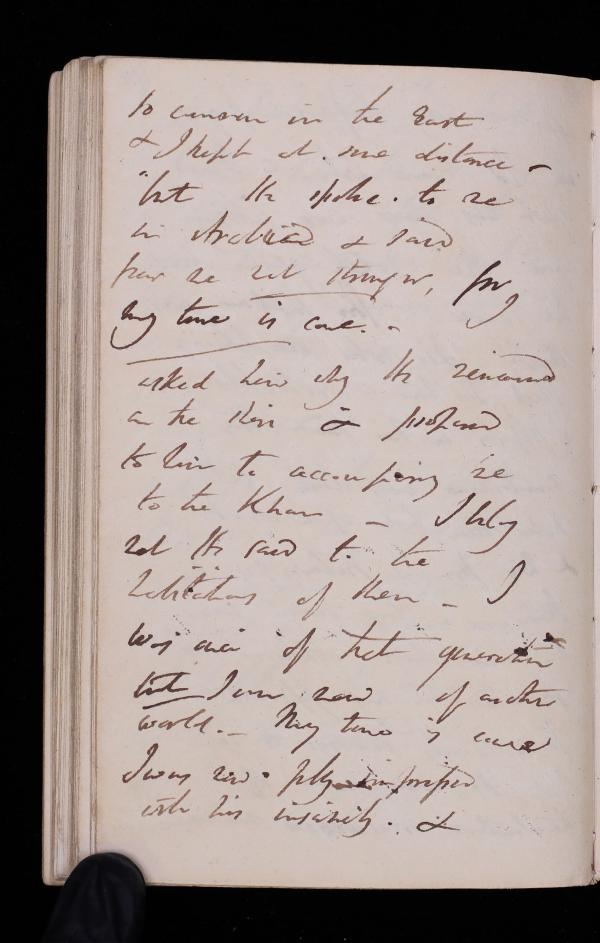 to common in the East
& I kept at some distance -
"but He spoke. to me
in Arabic & said
fear me not stranger, for
my time is come. -
asked him why He remained
in the Ruin & proposed
to him to accompany me
to the Khan - I belong
not He said to the
habitations of Men - I
was once of that generation
but I am now of another
world. - My time is come
I was now fully impressed
with his insanity. &